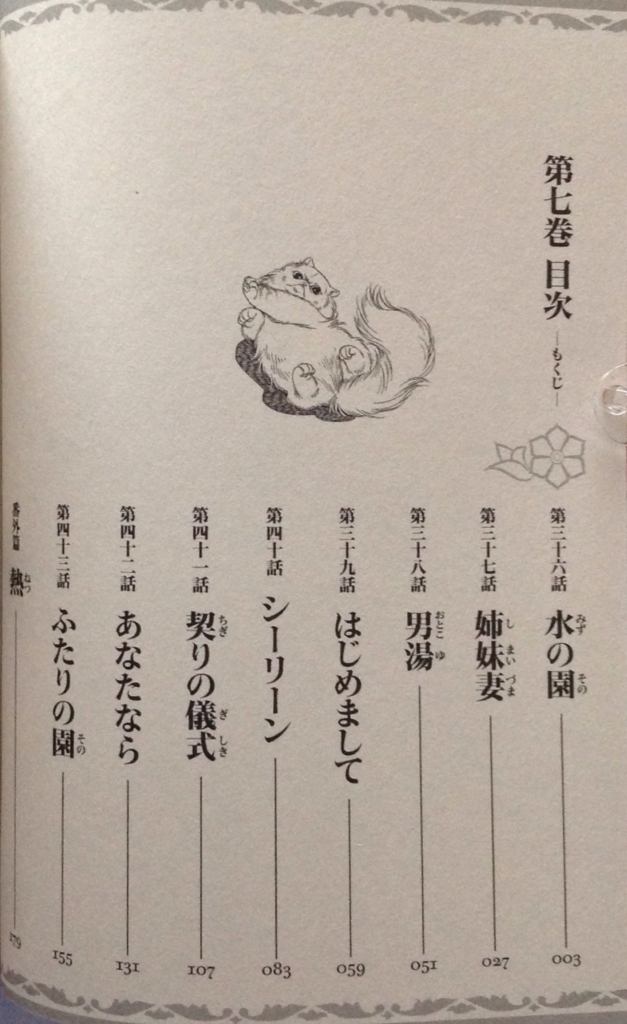 第七巻 目次
―もくじ―
第三十六話 水の園 003
第三十七話 姉妹妻 027
第三十八話 男湯 051
第三十九話 はじめまして 059
第四十話 シーリーン 083
第四十一話 契りの儀式 107
第四十二話 あなたなら 131
第四十三話 ふたりの園 155
番外篇 熱 179